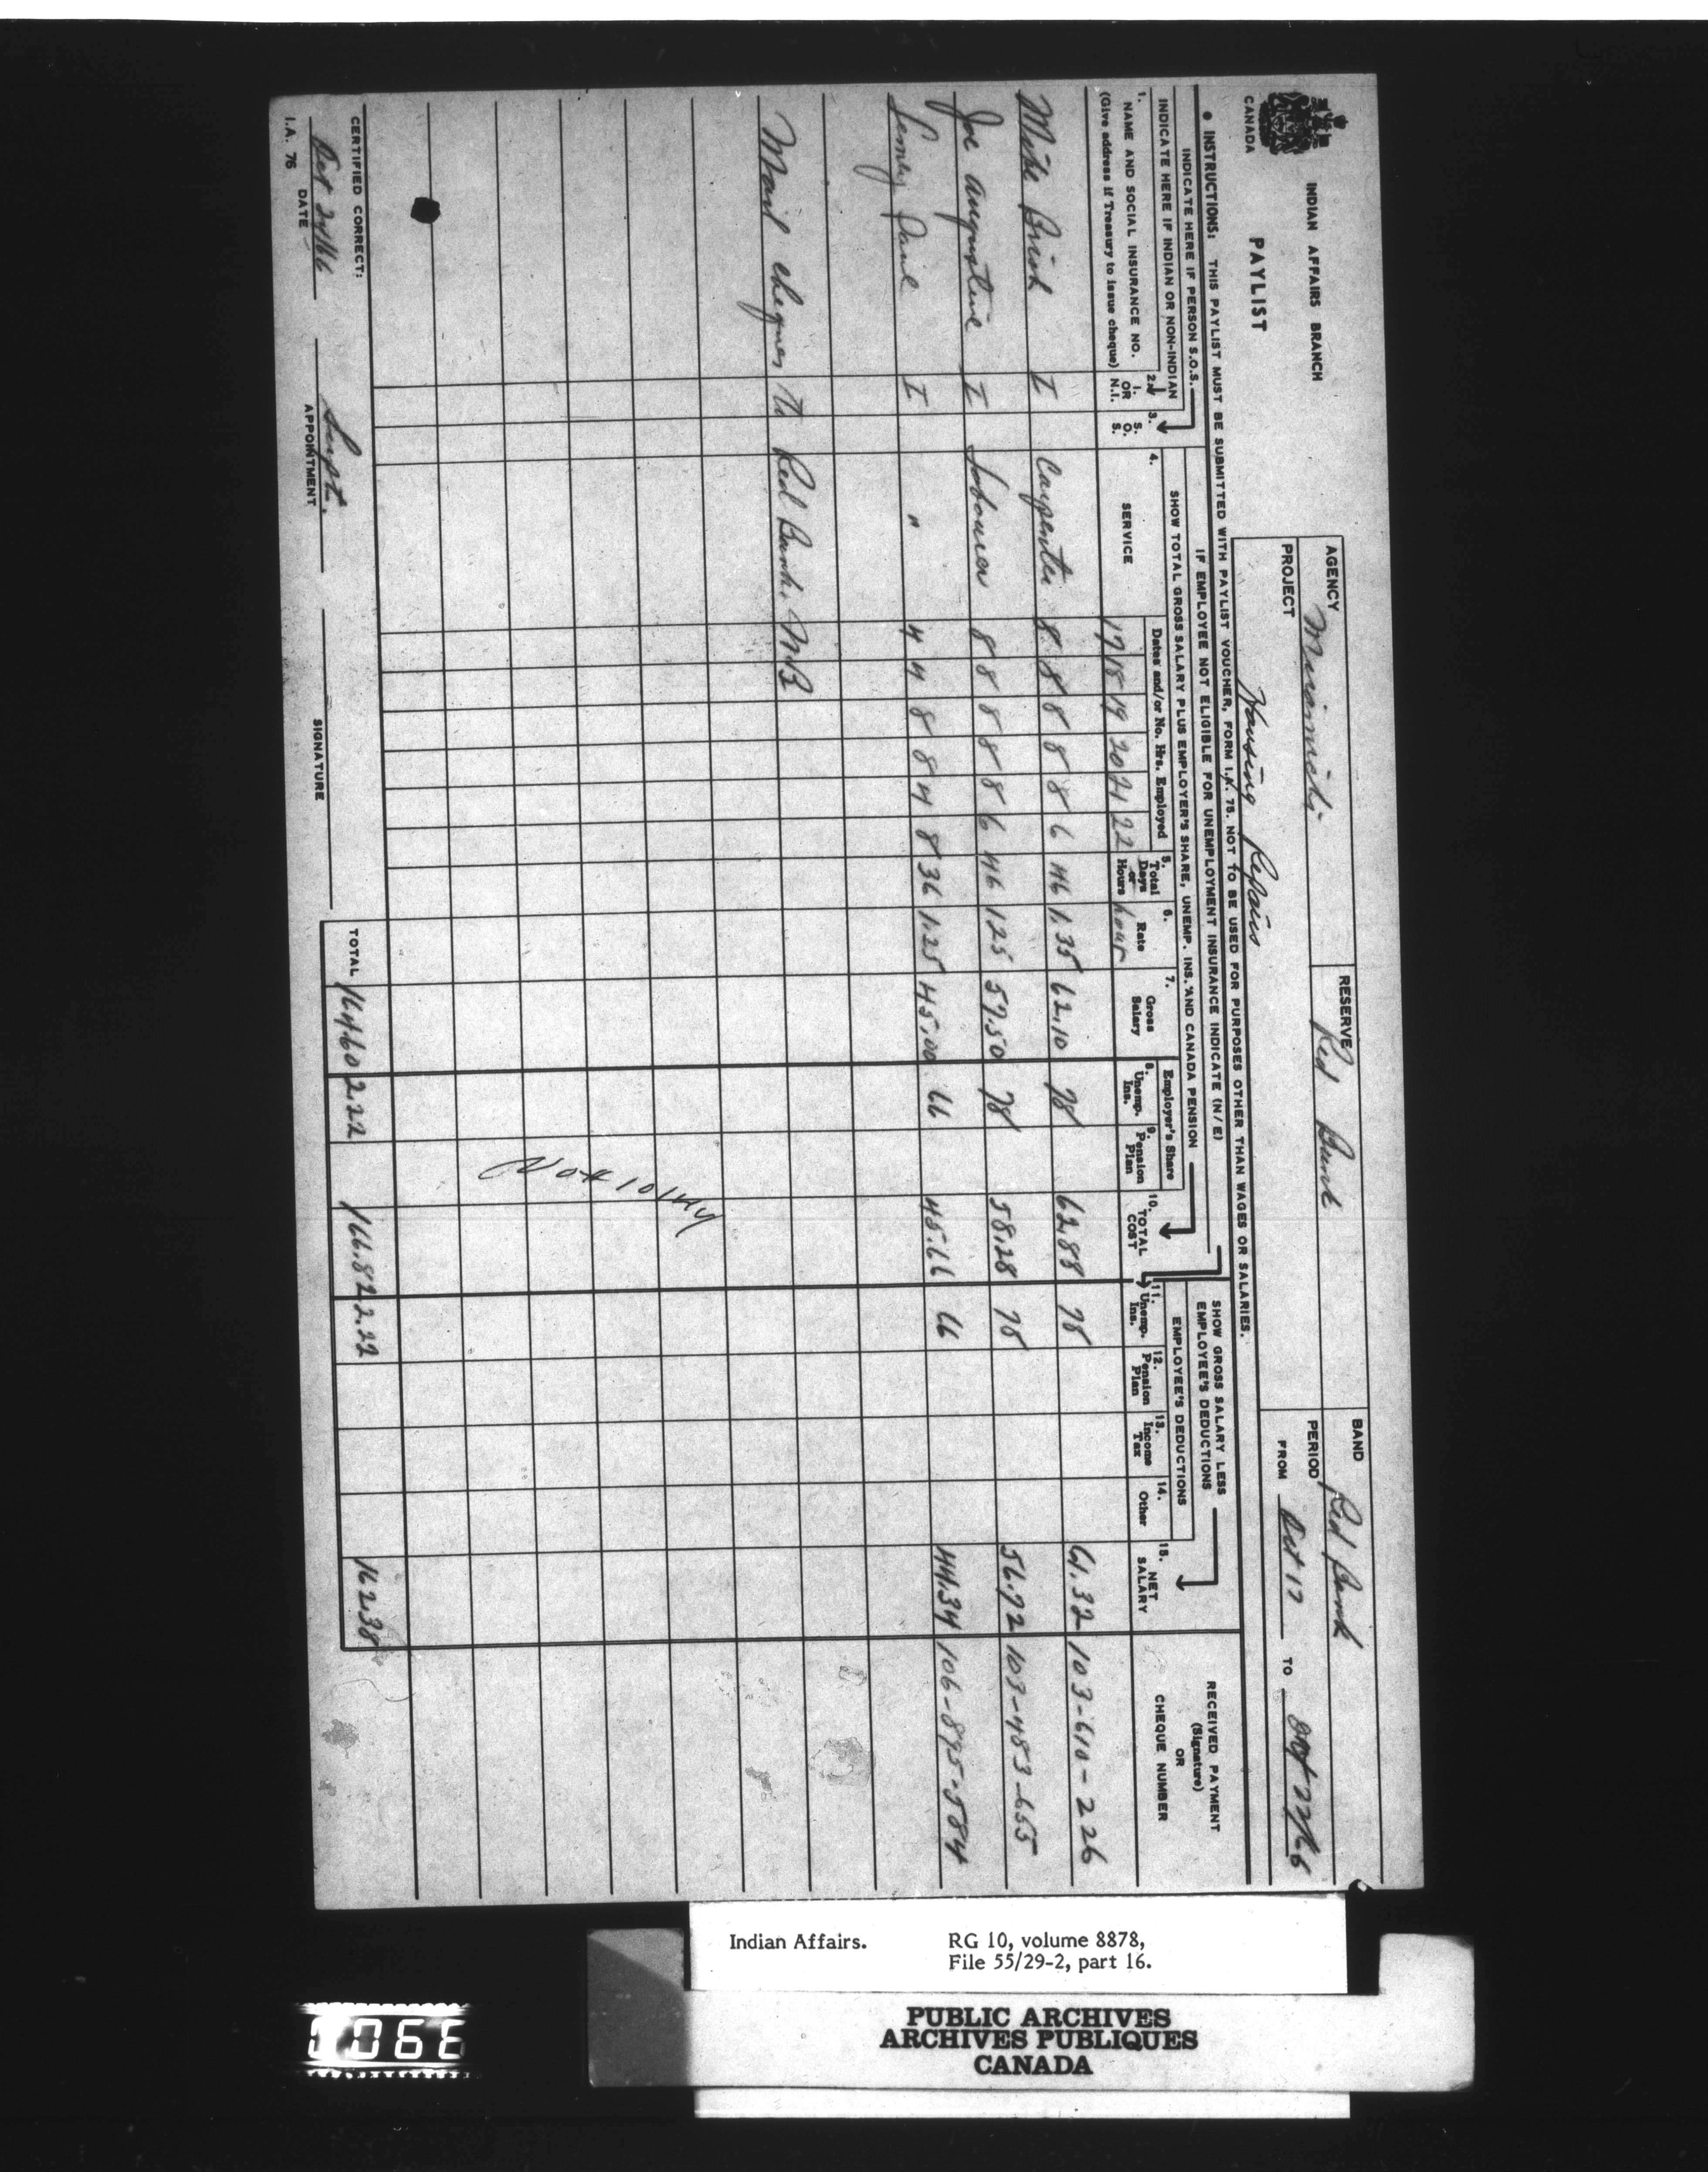 CANADA
INDIAN AFFAIRS BRANCH
PAYLIST
AGENCY Miramichi
RESERVE Red Bank
BAND Red Bank
PROJECT Housing Repairs
PERIOD FROM Oct 17 TO Oct 22/66
● INSTRUCTIONS: THIS PAYLIST MUST BE SUBMITTED WITH PAYLIST VOUCHER, FORM I.A. 75. NOT TO BE USED FOR PURPOSES OTHER THAN WAGES OR SALARIES.
IF EMPLOYEE NOT ELIGIBLE FOR UNEMPLOYMENT INSURANCE INDICATE (N/E)
INDICATE HERE IF PERSON S.O.S.
INDICATE HERE IF INDIAN OR NON-INDIAN
SHOW TOTAL GROSS SALARY PLUS EMPLOYER'S SHARE, UNEMP. INS. AND CANADA PENSION
SHOW GROSS SALARY LESS EMPLOYEE'S DEDUCTIONS
1. NAME AND SOCIAL INSURANCE NO.
(Give address if Treasury to issue cheque)
2. I. OR N.I.
3. S. O. S.
4. SERVICE
Dates and/or No. Hrs. Employed
17 18 19 20 21 22
5. Total Days or Hours
6. Rate
hour
7. Gross Salary
Employer's Share
8. Unemp. Ins.
9. Pension Plan
10. TOTAL COST
EMPLOYEE'S DEDUCTIONS
11. Unemp. Ins.
12. Pension Plan
13. Income Tax
14. Other
15. NET SALARY
RECEIVED PAYMENT
(Signature)
OR
CHEQUE NUMBER
Mike I Carpenter 8 8 8 8 8 6 46 1.35 62.10 78 62.88 78 61.32 103-610-226
Joe Augustine I Labourer 8 8 8 8 8 6 46 125 57.50 78 58.28 78 56.72 103-483-655
I " 4 4 8 8 4 8 36 1.25 45.00 66 45.66 66 44.34 106-895-584
Mail cheques to Red Bank, N.B
TOTAL 164.60 2.22 166.82 2.22 162.38
CERTIFIED CORRECT:
Oct 24/66 Supt.
DATE APPOINTMENT SIGNATURE
I.A. 76
Indian Affairs. RG 10, volume 8878,
File 55/29-2, part 16.
PUBLIC ARCHIVES
ARCHIVES PUBLIQUES
CANADA